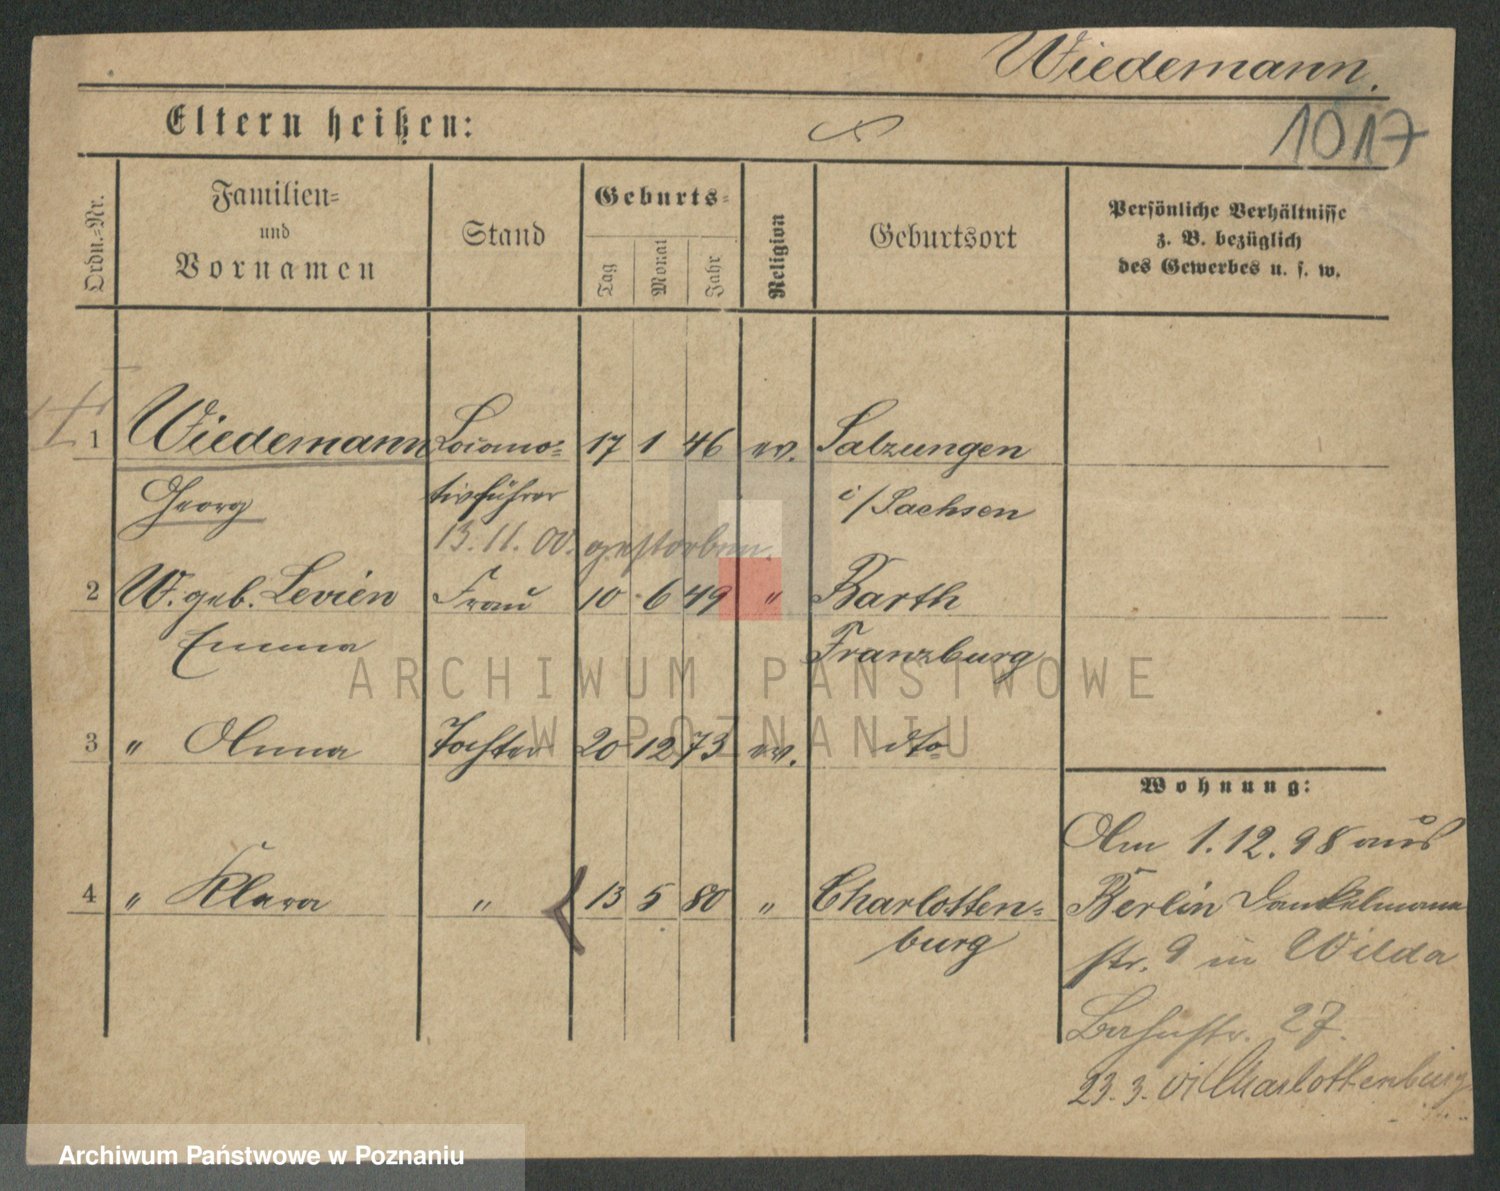 Wiedemann.
Eltern heißen:
1017
Ordn.-Nr.
Familien-
und
Vornamen
Stand
Geburts-
Tag
Monat
Jahr
Religion
Geburtsort
Persönliche Verhältnisse
z. B. bezüglich
des Gewerbes u. s. w.
1 Wiedemann Locomo- 17 1 46 ev. Salzungen
Georg tivführer i/Sachsen
13.11.00. gestorben.
2 W. geb. Levien Frau 10 6 49 " Barth
Emma Franzburg
ARCHIWUM PAŃSTWOWE
W POZNANIU
3 " Anna Tochter 20 12 73 ev. dto
Wohnung:
Am 1.12.98 aus
4 " Klara " 13 5 80 " Charlotten- Berlin Dankelmann
burg str. 9 in Wilda
Bahnstr. 27.
23.3. 01 Charlottenburg
Archiwum Państwowe w Poznaniu